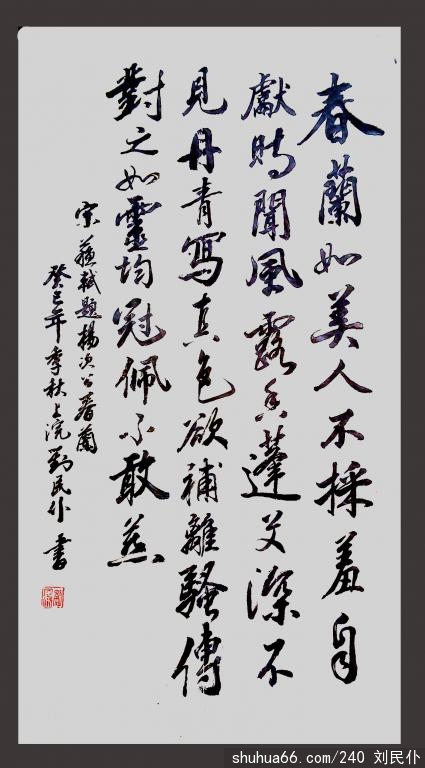 春蘭如美人不採羞自
獻時聞風露香蓬艾深不
見丹青寫真色欲補離騷傳
對之如靈均冠佩不敢燕
宋蘇軾題楊次公春蘭
癸巳年季秋上浣劉民仆書
shuhua66.com/240 刘民仆